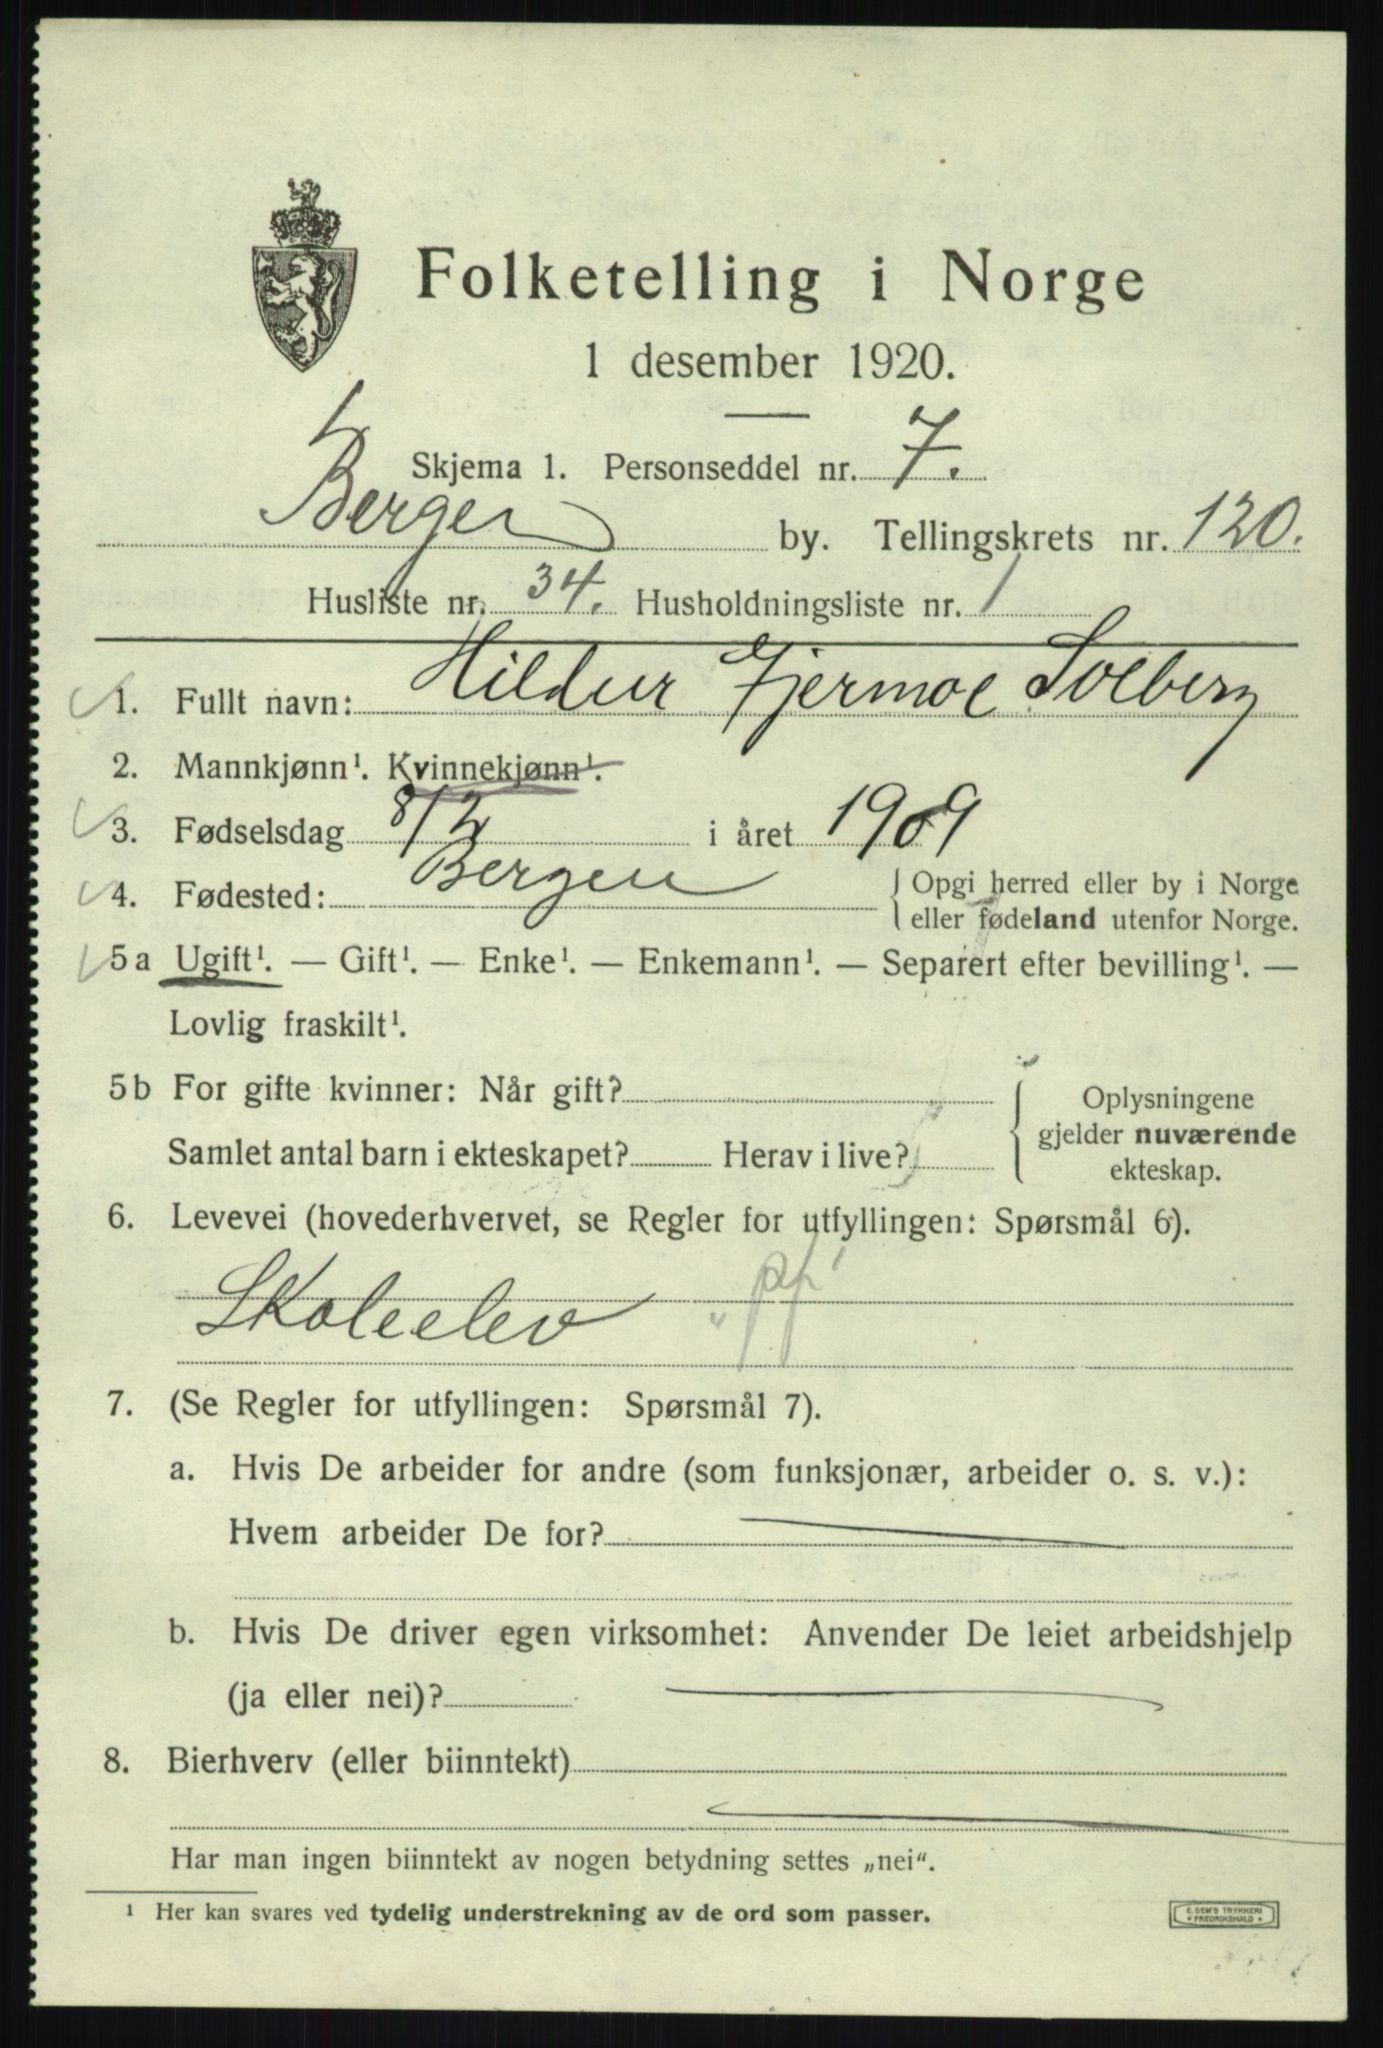 Folketelling i Norge
1 desember 1920.
Skjema 1. Personseddel nr. 7.
Bergen by. Tellingskrets nr. 120.
Husliste nr. 34. Husholdningsliste nr. 1
1. Fullt navn: Hildur Fjermoe Solberg
2. Mannkjønn¹. Kvinnekjønn¹.
3. Fødselsdag 8/2 i året 1909
4. Fødested: Bergen { Opgi herred eller by i Norge
eller fødeland utenfor Norge.
5 a Ugift¹. — Gift¹. — Enke¹. — Enkemann¹. — Separert efter bevilling¹. —
Lovlig fraskilt¹.
5 b For gifte kvinner: Når gift? { Oplysningene
gjelder nuværende
Samlet antal barn i ekteskapet? Herav i live?
ekteskap.
6. Levevei (hovederhvervet, se Regler for utfyllingen: Spørsmål 6).
Skoleelev
7. (Se Regler for utfyllingen: Spørsmål 7).
a. Hvis De arbeider for andre (som funksjonær, arbeider o. s. v.):
Hvem arbeider De for?
b. Hvis De driver egen virksomhet: Anvender De leiet arbeidshjelp
(ja eller nei)?
8. Bierhverv (eller biinntekt)
Har man ingen biinntekt av nogen betydning settes „nei“.
¹ Her kan svares ved tydelig understrekning av de ord som passer.
E. SEM'S TRYKKERI
* FREDRIKSHALD *